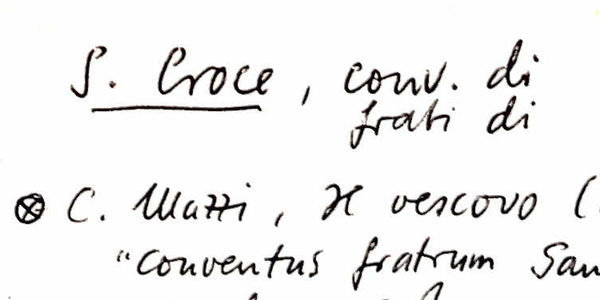 S. Croce, conv. di
frati di
⊗ C. Mazzi, Il vescovo (
"conventus fratrum San